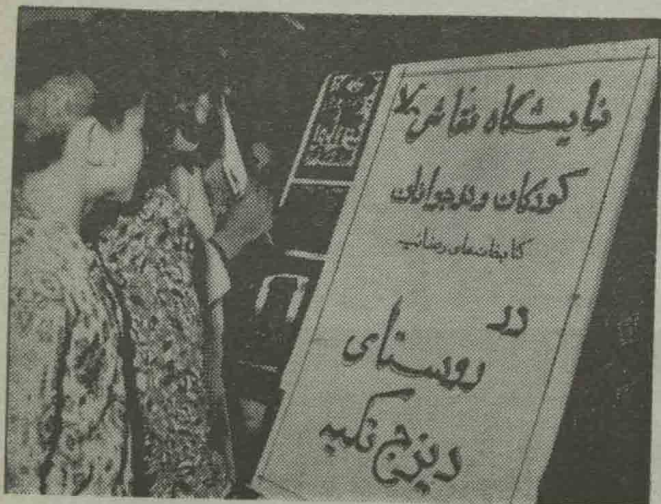 نمایشگاه نقاشی
کودکان و نوجوانان
کتابخانه‌های رضائیه
در
روستای
دیزج تکیه